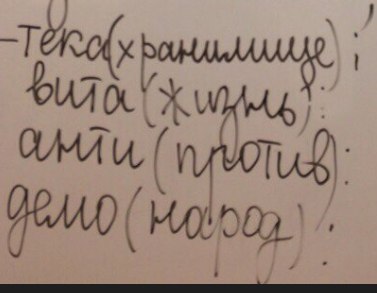 -тека(хранилище);
вита(жизнь):
анти(против):
демо(народ):